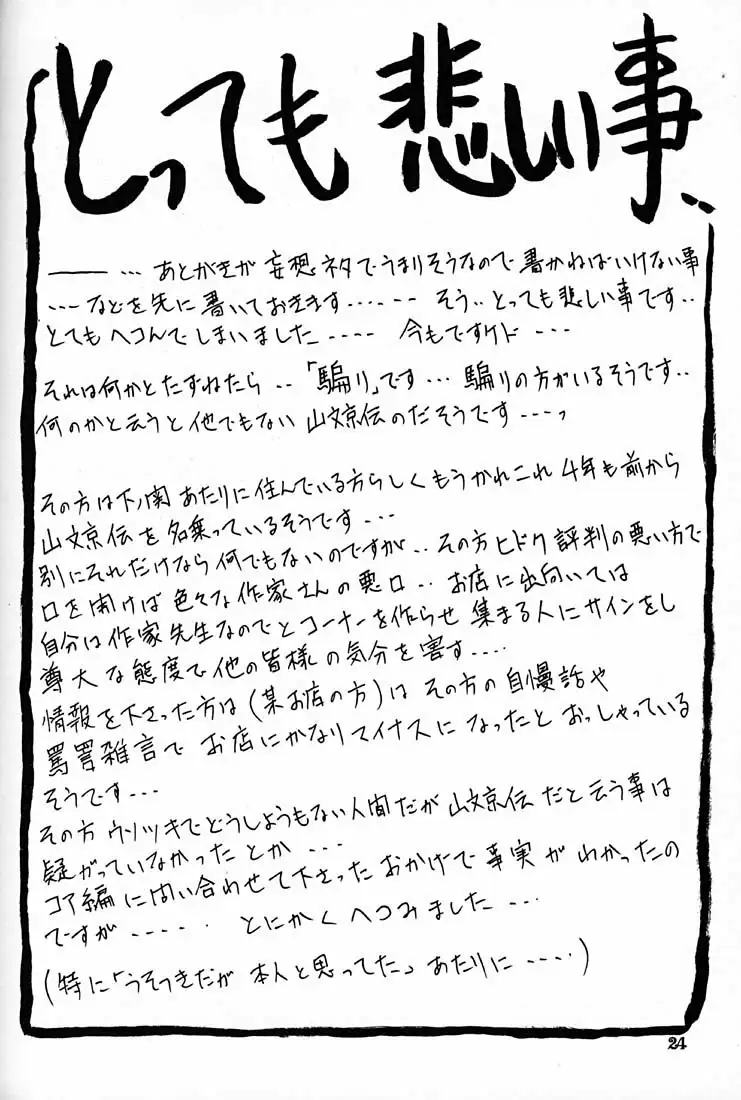 とっても悲しい事‥
――― … あとがきが 妄想ネタでうまりそうなので 書かねばいけない事
…‥ などを先に書いておきます…… そう‥ とっても悲しい事です‥
とても ヘコんでしまいました…… 今もですケド …
それは何かとたずねたら ‥「騙り」です … 騙りの方がいるそうです‥
何のかと云うと他でもない 山文京伝のだそうです……っ
その方は下ノ関あたりに住んでいる方らしくもうかれこれ 4年も前から
山文京伝を名乗っているそうです…
別にそれだけなら何でもないのですが‥ その方ヒドク評判の悪い方で
口を開けば色々な作家さんの悪口‥ お店に出向いては
自分は作家先生なのでとコーナーを作らせ 集まる人にサインをし
尊大な態度で他の皆様の気分を害す…‥
情報を下さった方は(某お店の方)は その方の自慢話や
罵詈雑言で お店にかなりマイナスになったとおっしゃっている
そうです…
その方 ウソツキでどうしようもない人間だが 山文京伝だと云う事は
疑がっていなかったとか …
コア編に問い合わせて下さったおかげで 事実がわかったの
ですが…… とにかく へコみました …
(特に「うそつきだが 本人と思ってた」あたりに……)
24